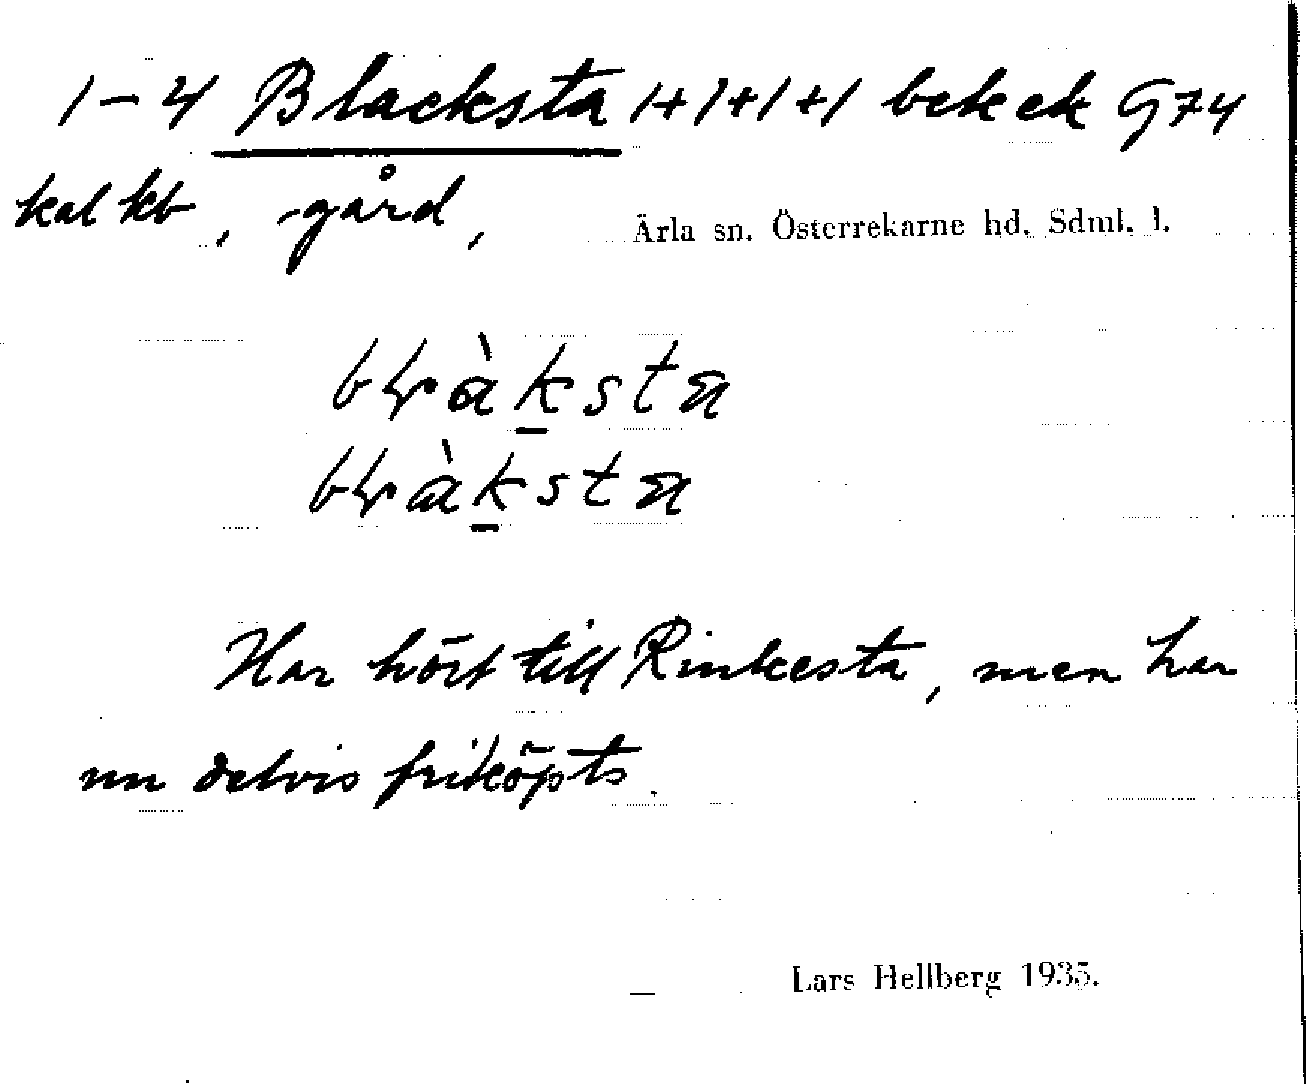 1–4 Blacksta 1+1+1+1 bek ek G74
kal kb, gård,
Ärla sn. Österrekarne hd. Sdml. l.
blàksta
blàksta
Har hört till Rinkesta, men har
nu delvis friköpts.
Lars Hellberg 1935.